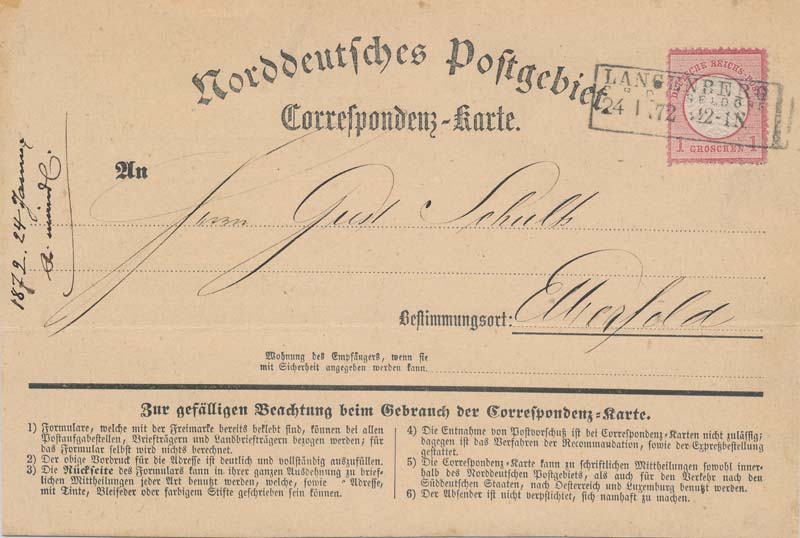 Norddeutsches Postgebiet
Correspondenz-Karte.
DEUTSCHE REICHS-POST
1 GROSCHEN 1
LANGENBERG
24 1 72 12-1N
An
Herrn Gust Schulte
Bestimmungsort: Elberfeld
Wohnung des Empfängers, wenn sie
mit Sicherheit angegeben werden kann.
1872. 24 Januar
Zur gefälligen Beachtung beim Gebrauch der Correspondenz-Karte.
1) Formulare, welche mit der Freimarke bereits beklebt sind, können bei allen
Postaufgabestellen, Briefträgern und Landbriefträgern bezogen werden; für
das Formular selbst wird nichts berechnet.
2) Der obige Vordruck für die Adresse ist deutlich und vollständig auszufüllen.
3) Die Rückseite des Formulars kann in ihrer ganzen Ausdehnung zu brief-
lichen Mittheilungen jeder Art benutzt werden, welche, sowie Adresse,
mit Tinte, Bleifeder oder farbigem Stifte geschrieben sein können.
4) Die Entnahme von Postvorschuß ist bei Correspondenz-Karten nicht zulässig;
dagegen ist das Verfahren der Recommandation, sowie der Expreßbestellung
gestattet.
5) Die Correspondenz-Karte kann zu schriftlichen Mittheilungen sowohl inner-
halb des Norddeutschen Postgebiets, als auch für den Verkehr nach den
Süddeutschen Staaten, nach Oesterreich und Luxemburg benutzt werden.
6) Der Absender ist nicht verpflichtet, sich namhaft zu machen.